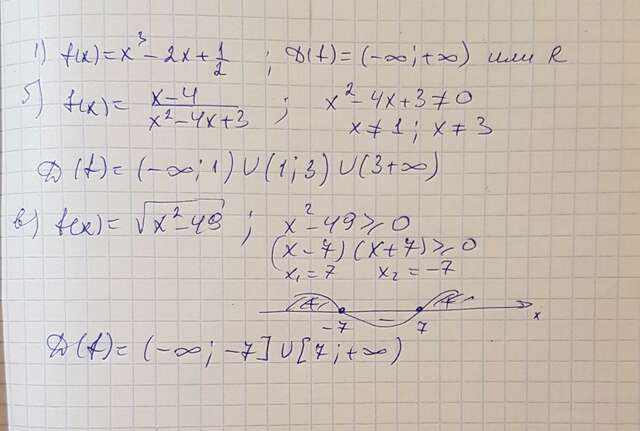 1) f(x)=x³-2x+1/2 ; D(f)=(-∞;+∞) или R
б) f(x)= (x-4)/(x²-4x+3) ; x²-4x+3≠0
x≠1; x≠3
D(f)=(-∞;1)∪(1;3)∪(3+∞)
в) f(x)=√(x²-49) ; x²-49≥0
(x-7)(x+7)≥0
x₁=7 x₂=-7
+ - +
-7 7 x
D(f)=(-∞;-7]∪[7;+∞)